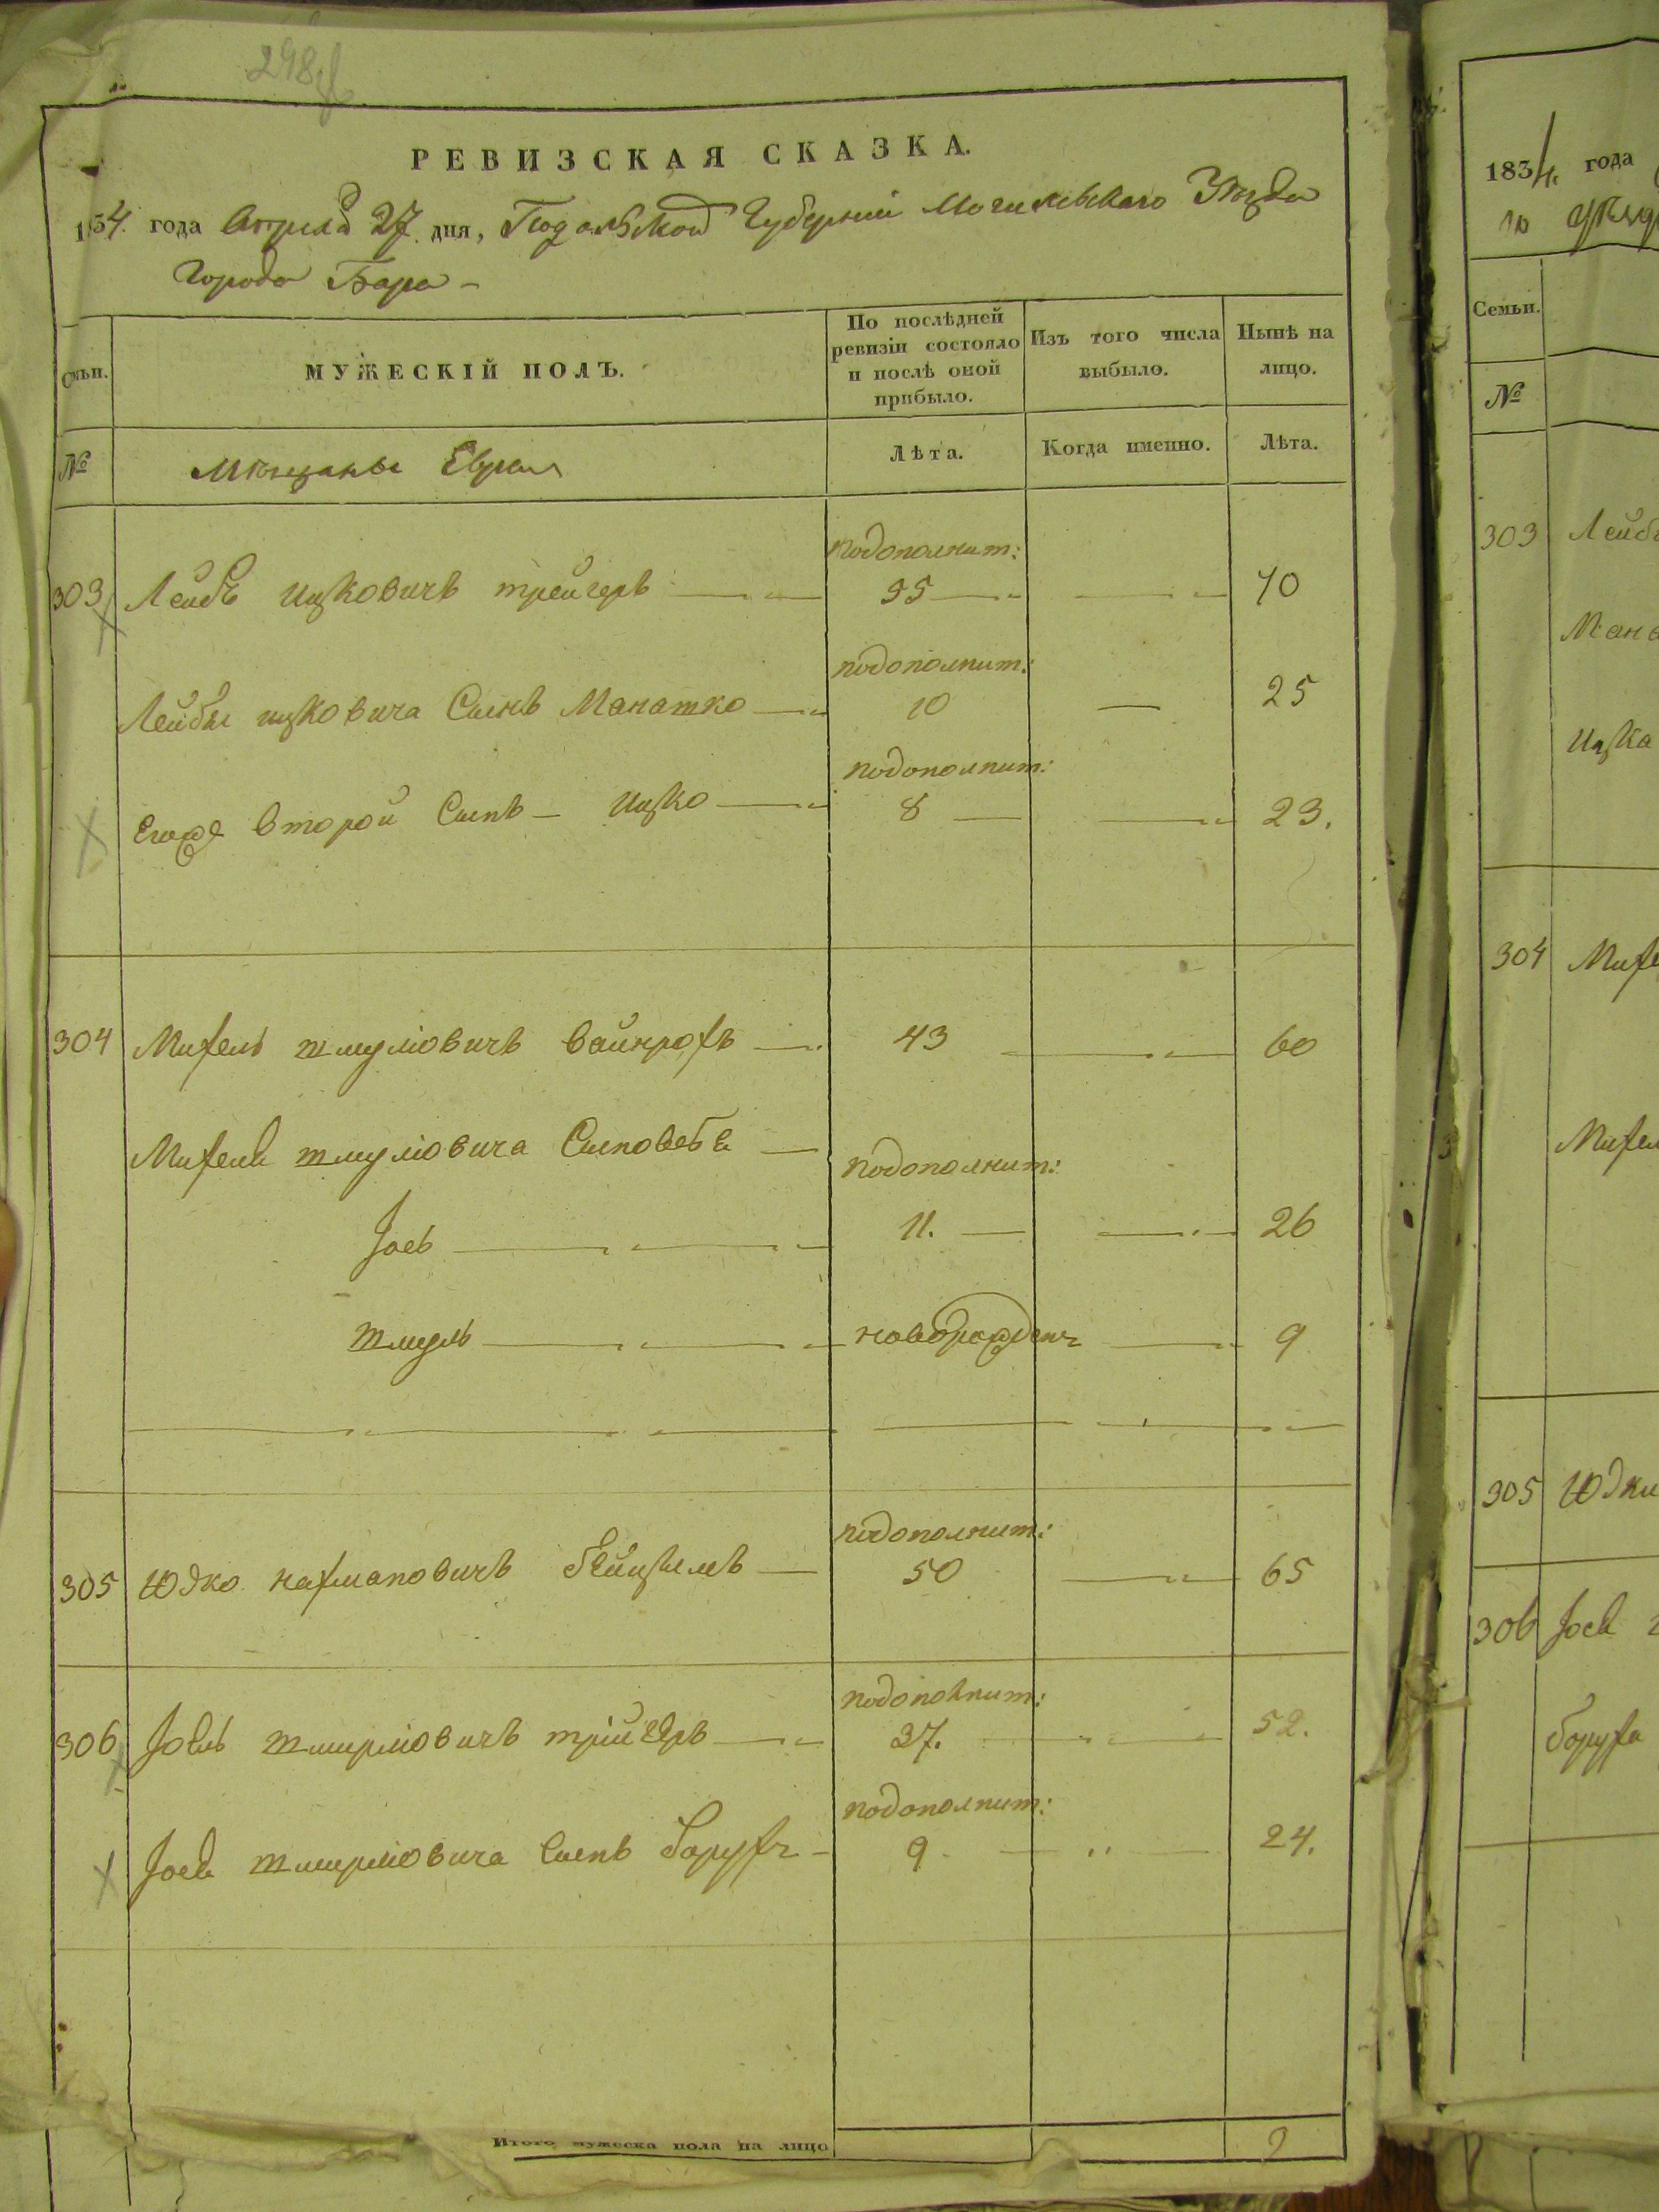 298
РЕВИЗСКАЯ СКАЗКА.
1834 года Апреля 27 дня, Подольской Губернии Могилевского Уѣзда
Города Бара
Семьи.
МУЖЕСКІЙ ПОЛЪ.
По послѣдней ревизіи состояло и послѣ оной прибыло.
Изъ того числа выбыло.
Нынѣ на лицо.
№
Мѣщаны Евреи
Лѣта.
Когда именно.
Лѣта.
подополнит:
303 Лейбъ Ицковичъ трейгеръ 55 70
подополнит:
Лейбы ицковича Сынъ Манашко 10 25
подополнит:
Егоже второй Сынъ Ицко 8 23.
304 Михель шмуліовичъ вайнрохъ 43 60
Михеля шмуліовича Сыновья
подополнит:
Іось 11. 26
шмуль новорожден 9
подополнит:
305 Юдко нахмановичъ 50 65
подополнит:
306 Іось шмирліовичъ трійгеръ 37. 52.
подополнит:
Іося шмирліовича Сынъ Борухъ 9 24.
Итого мужеска пола на лицо 9
1834 года
Семьи.
№
303
Ицка
304
305 Юдки
306 Іося
Боруха